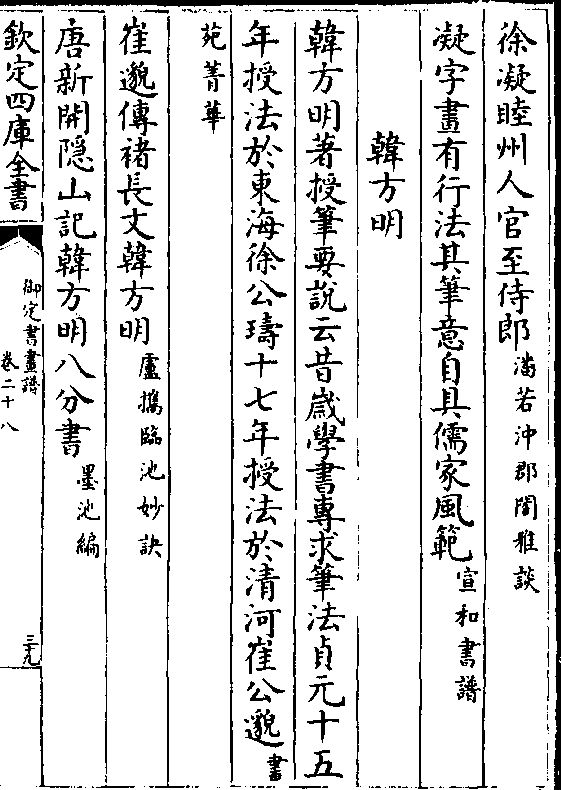 徐凝睦州人官至侍郎潘若沖郡閣雅談
凝字畫有行法其筆意自具儒家風範宣和書譜
韓方明
韓方明著授筆要說云昔歲學書專求筆法貞元十五
年授法於東海徐公璹十七年授法於清河崔公邈書
苑菁華
崔邈傳禇長文韓方明盧擕臨池妙訣
唐新開隱山記韓方明八分書墨池編
欽定四庫全書
御定書畫譜
卷二十八
三九